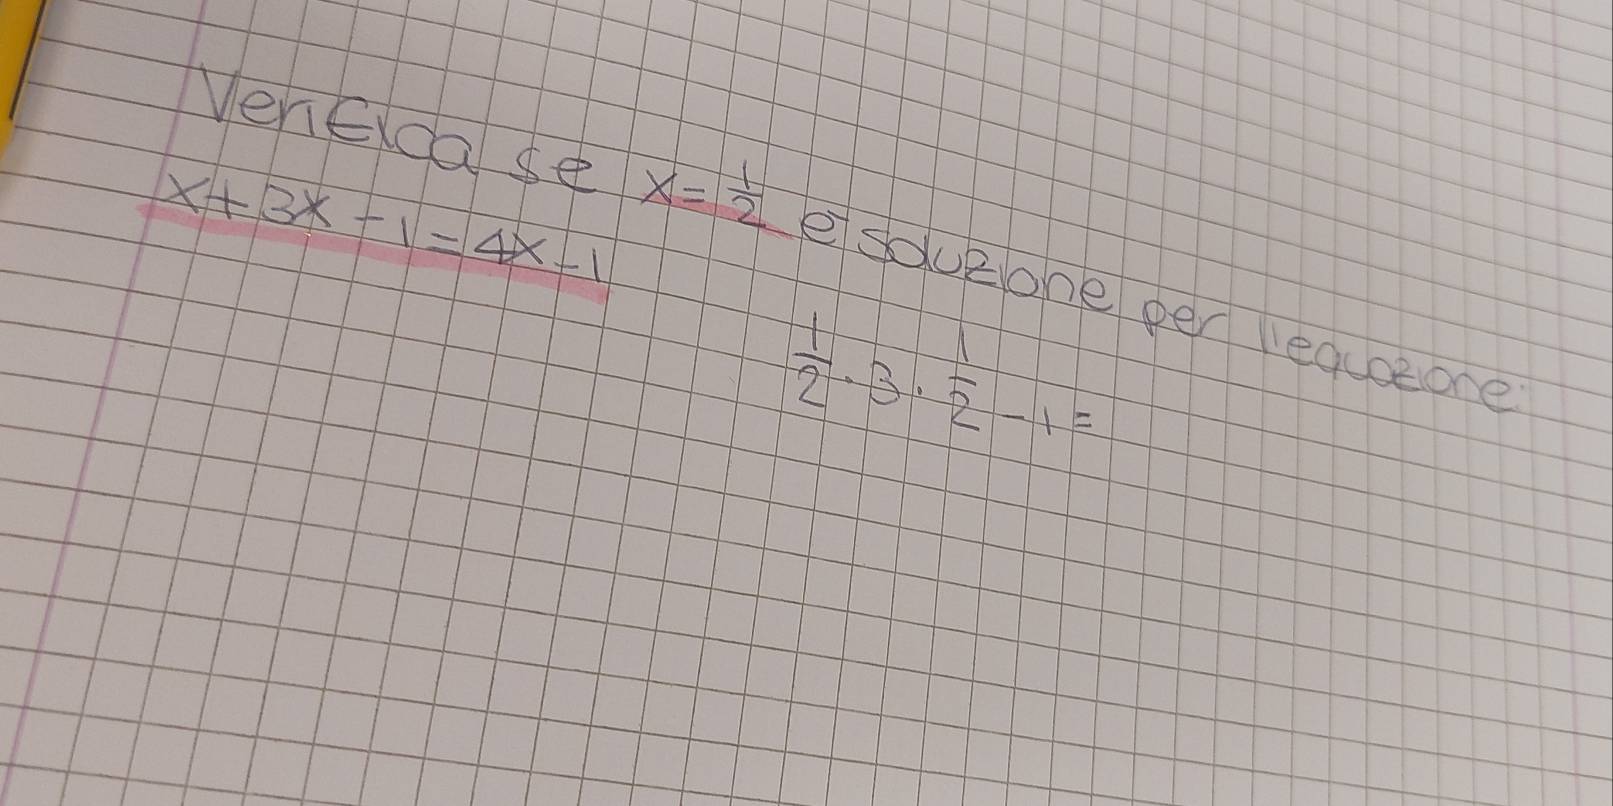 Verifica se x = 1/2 è soluzione per l'equazione:
x + 3x - 1 = 4x - 1
1/2 · 3 · 1/2 - 1 =